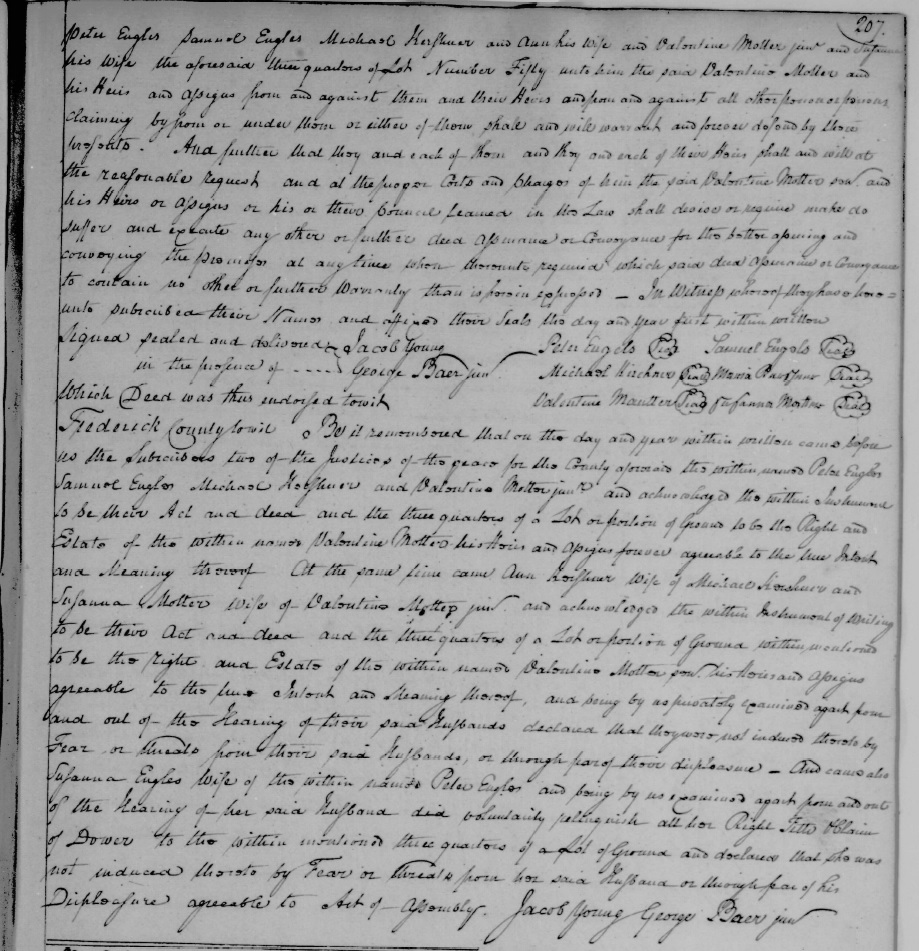 207.
Peter Engles Samuel Engles Michael Kershner and Ann his Wife and Valentine Motter junr and Susanna
his wife the aforesaid three quarters of Lot Number Fifty unto him the said Valentine Motter and
his Heirs and assigns from and against them and their Heirs and from and against all other person or persons
claiming by from or under them or either of them shall and will warrant and forever defend by these
presents. And further that they and each of them and they and each of their Heirs shall and will at
the reasonable request and at the proper Costs and Charges of him the said Valentine Motter senr. and
his Heirs or assigns or his or their Council learned in the Law shall devise or require make do
suffer and execute any other or further deed assurance or Conveyance for the better assuring and
conveying the premises at any time when thereunto required which said deed assurance or Conveyance
to contain no other or further Warranty than is herein expressed — In Witness whereof they have here =
unto subscribed their Names and affixed their Seals the day and year first within written
Signed sealed and delivered Jacob Young Peter Engels Seal Samuel Engels Seal
in the presence of ---- George Baer junr. Michael Kirshner Seal Seal
Which Deed was thus endorsed towit Valentine Mautter Seal Susanna Seal
Frederick County towit Be it remembered that on the day and year within written came before
us the Subscribers two of the Justices of the peace for the County aforesaid the within named Peter Engles
Samuel Engles Michael Kershner and Valentine Motter junr and acknowledged the within Instrument
to be their Act and deed and the three quarters of a Lot or portion of Ground to be the Right and
Estate of the within named Valentine Motter his Heirs and assigns forever agreeable to the true Intent
and Meaning thereof At the same time came Ann Kershner Wife of Michael Kershner and
Susanna Motter wife of Valentine Motter junr and acknowledged the within Instrument of Writing
to be their Act and deed and the three quarters of a Lot or portion of Ground within mentioned
to be the right and Estate of the within named Valentine Motter senr. his Heirs and assigns
agreeable to the true Intent and Meaning thereof, and being by us privately examined apart from
and out of the Hearing of their said Husbands declared that they were not induced thereto by
Fear or threats from their said Husbands, or through fear of their displeasure — And came also
Susanna Engles Wife of the within named Peter Engles and being by us examined apart from and out
of the Hearing of her said Husband did voluntarily relinquish all her Right Title & Claim
of Dower to the within mentioned three quarters of a Lot of Ground and declared that she was
not induced thereto by Fear or Threats from her said Husband or through fear of his
Displeasure agreeable to Act of Assembly. Jacob Young George Baer junr